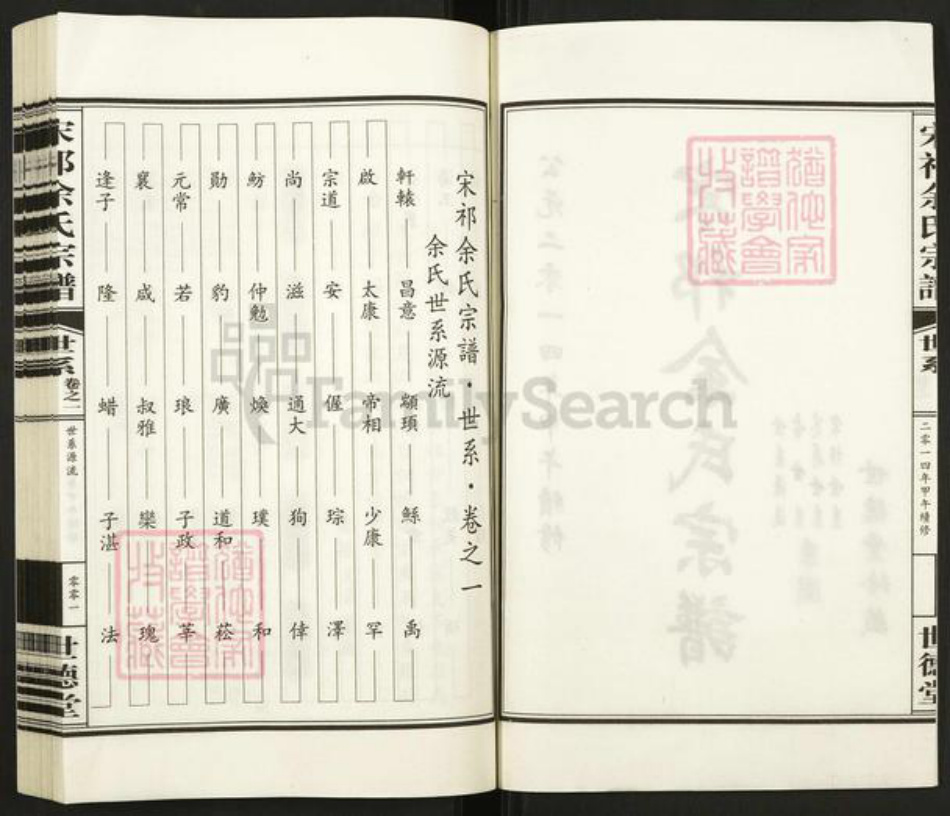 宋祁余氏宗譜
世系
二零一四年甲午續修
世德堂
猶他家譜學會收藏
宋祁余氏宗譜·世系·卷之一
余氏世系源流
軒轅 昌意 顓頊 鯀 禹
啟 太康 帝相 少康 罕
宗道 安 偓 琮 澤
尚 滋 通大 狗 倖
魴 仲勉 煥 璞 和
勛 豹 廣 道和 菘
元常 若 琅 子政 莘
襄 咸 叔雅 欒 瑰
逢子 隆 蜡 子湛 法
宋祁余氏宗譜
世系 卷之一
世系源流
零零一
世德堂
猶他家譜學會收藏
FamilySearch